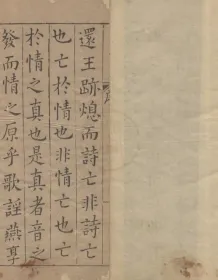 還王跡熄而詩亡非詩亡
也亡於情也非情亡也亡
於情之真也是真者音之
發而情之原乎歌謡燕享